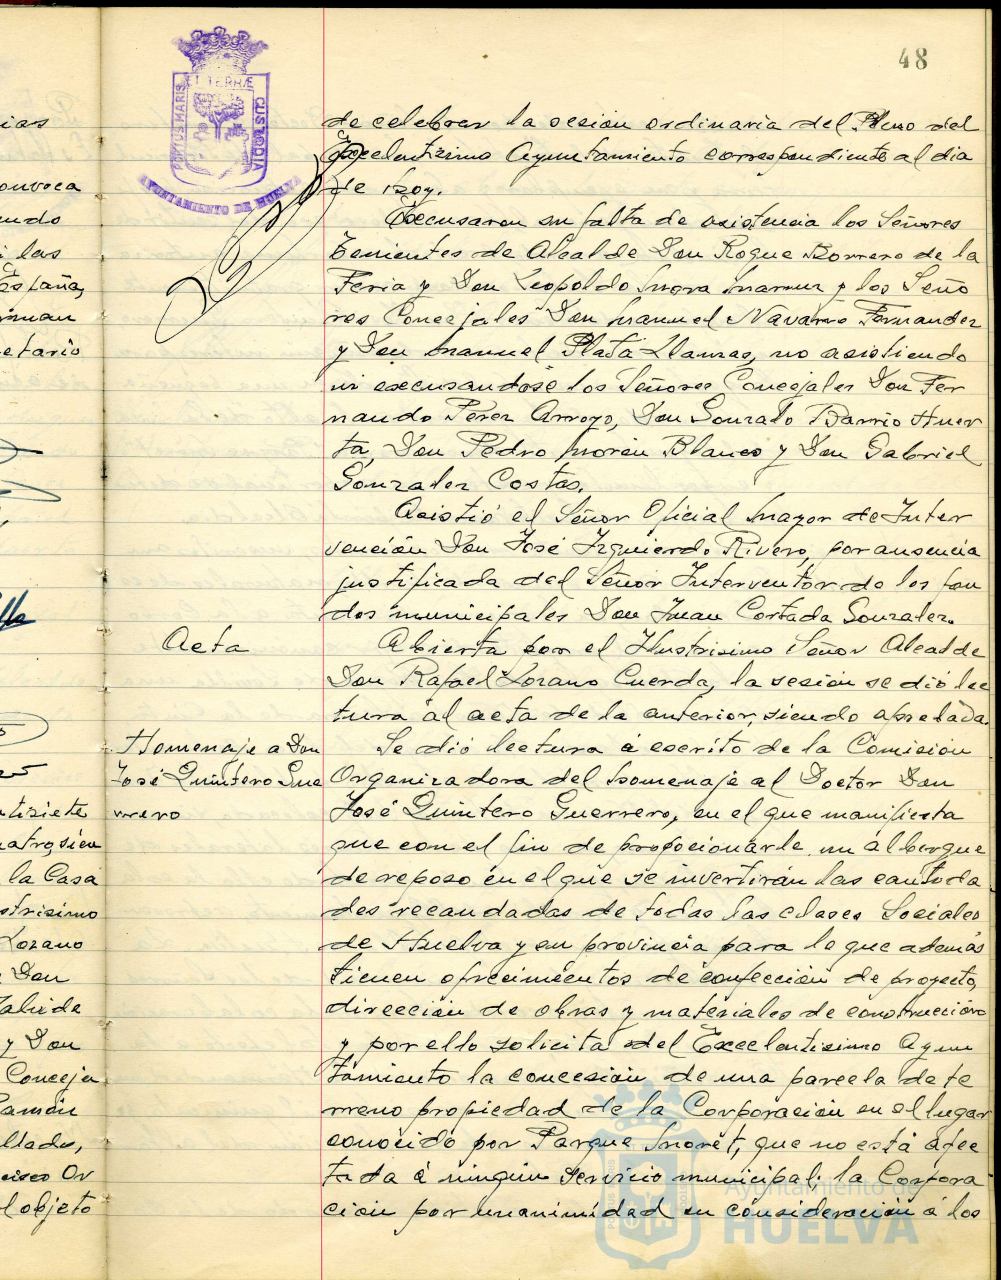 48
PORTUS MARIS ET TERRÆ CUSTODIA
AYUNTAMIENTO DE HUELVA
de celebrar la sesión ordinaria del Pleno del
Excelentísimo Ayuntamiento correspondiente al dia
de hoy.
Excusaron su falta de asistencia los Señores
Tenientes de Alcalde Don Roque Borrero de la
Feria y Don Leopoldo Mora y los Seño
res Concejales Don Manuel Navarro Fernandez
y Don Manuel Plata Llamas, no asistiendo
ni excusandose los Señores Concejales Don Fer
nando Perez Arroyo, Don Gonzalo Barrio Huer
ta, Don Pedro Morón Blanco y Don Gabriel
Gonzalez Costas.
Asistió el Señor Oficial Mayor de Inter
vención Don José Izquierdo Rivero, por ausencia
justificada del Señor Interventor de los fon
dos municipales Don Juan Cortada Gonzalez.
Acta
Abierta por el Ilustrisimo Señor Alcalde
Don Rafael Lozano Cuerda, la sesión se dió lec
tura al acta de la anterior, siendo aprobada.
Homenaje a Don
José Quintero Gue
rrero
Se dió lectura á escrito de la Comisión
Organizadora del homenaje al Doctor Don
José Quintero Guerrero, en el que manifiesta
que con el fin de propocionarle un albergue
de reposo en el que se invertirán las cantida
des recaudadas de todas las clases Sociales
de Huelva y su provincia para lo que además
tienen ofrecimientos de confección de proyecto,
dirección de obras y materiales de construcción
y por ello solicita del Excelentisimo Ayun
tamiento la concesión de una parcela de te
rreno propiedad de la Corporación en el lugar
conocido por Parque Moret, que no está afec
tada á ningún servicio municipal; la Corpora
ción por unanimidad en consideración á los
ias
onvoca
ndo
las
España,
etario
ntisiete
la Casa
strisimo
Lozano
Don
y Don
Conceja
Ramón
llado,
l objeto
Ayuntamiento de
HUELVA